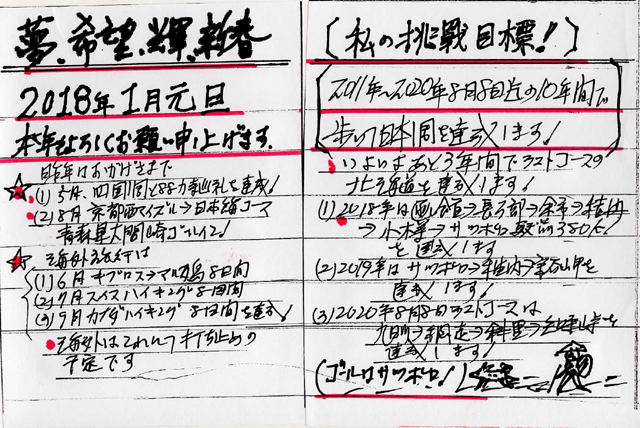 夢、希望、輝、新春
2018年1月元旦
本年もよろしくお願い申し上げます。
昨年はおかげさまで
(1)5月、四国1周と88ヵ寺巡礼を達成!
(2)8月 京都西マイズル→日本海コース
青森県大間崎ゴールイン!
海外旅行は
(1)6月キプロス→マルタ島8日間
(2)7月スイスハイキング8日間
(3)9月カナダハイキング8日間を達成!
海外はこれにて打ち止めの
予定です
(私の挑戦目標!)
2011年~2020年8月8日迄の10年間で
歩いて日本1周を達成します!
いよいよあと3年間でラストコースの
北海道を達成します!
(1)2018年は函館→長万部→余市→積丹
→小樽→サッポロ 最高380K!
を達成します
(2)2019年はサッポロ→稚内→宗谷岬を
達成します!
(3)2020年8月8日ラストコースは
→網走→斜里→
達成します!
(ゴールはサッポロ!)